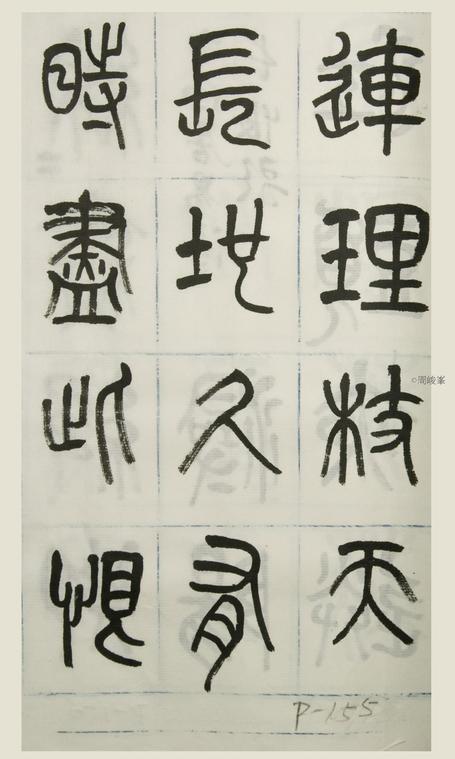 連理枝天
長地久有
時盡此恨
P-155
©周峻峯